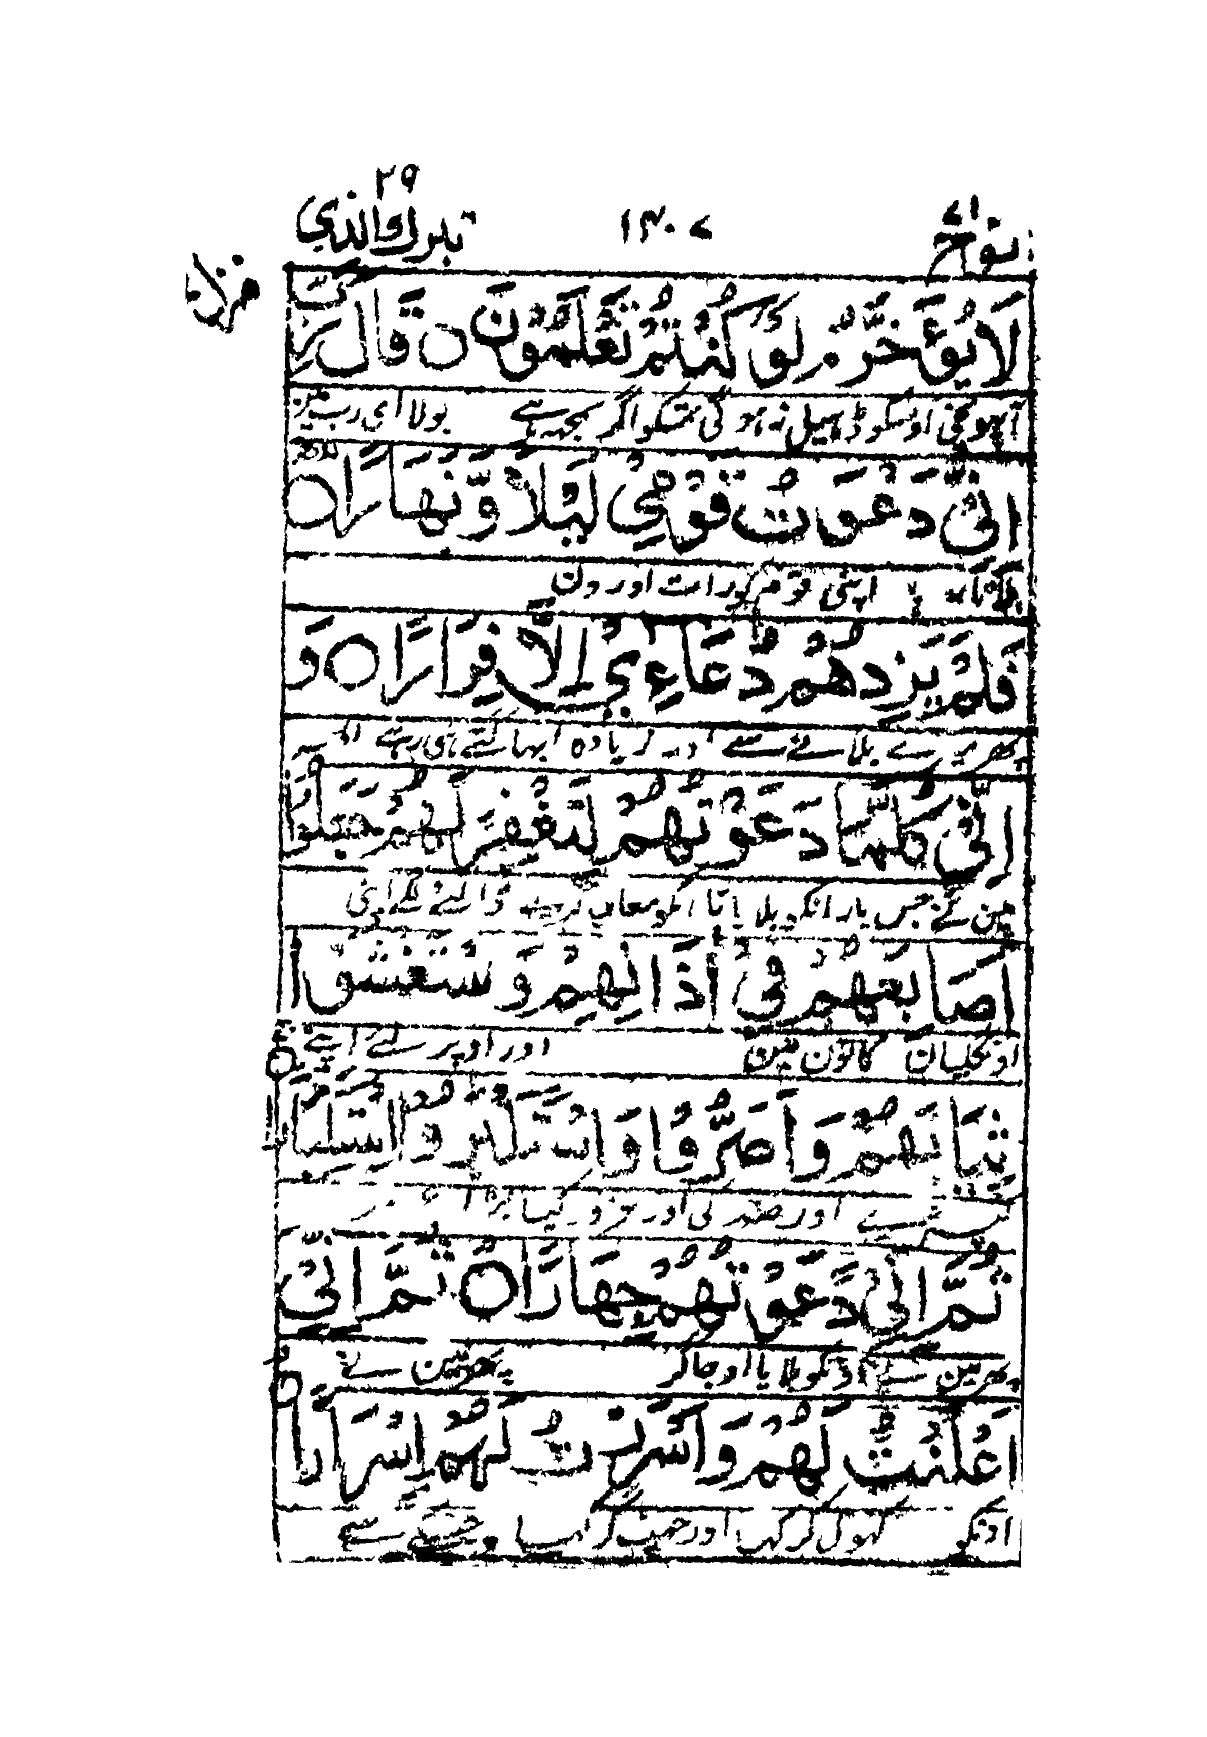 نوح ٧١
١٤٠٧
تبرك الذي ٢٩
لَا يُؤَخَّرُ مْ لَوْ كُنْتُمْ تَعْلَمُوْنَ ○ قَالَ رَبِّ
اوسکو ڈہیل نہ ہو گی تمکو اگر سمجہہ ہے بولا ای رب مین
اِنِّیْ دَعَوْتُ قَوْمِیْ لَیْلًا وَّنَهَارًا ○
بلاتا رہا اپنی قوم کو رات اور دن
فَلَمْ یَزِدْهُمْ دُعَاءِیْ اِلَّا فِرَارًا ○ وَ
پھر میرے بلانے سے اور زیادہ بہاگتے ہی رہے اور
اِنِّیْ کُلَّمَا دَعَوْتُهُمْ لِتَغْفِرَ لَهُمْ جَعَلُوْا
مین نے جس بار انکو بلایا تا انکو معاف کرے ڈالنے لگے اپنی
اَصَابِعَهُمْ فِیْ اٰذَانِهِمْ وَاسْتَغْشَوْا
اونگلیان کانون مین اور اوپر لئے اپنے
ثِیَابَهُمْ وَاَصَرُّوْا وَاسْتَکْبَرُوا اسْتِکْبَارًا ○
کپڑے اور ضد کی اور غرور کیا بڑا
ثُمَّ اِنِّیْ دَعَوْتُهُمْ جِهَارًا ○ ثُمَّ اِنِّیْ
پھر مین نے اونکو بلایا اوجاگر پھر مین نے
اَعْلَنْتُ لَهُمْ وَاَسْرَرْتُ لَهُمْ اِسْرَارًا ○
اونکو کہول کر کہا اور چھپ کر کہا چپکے سے